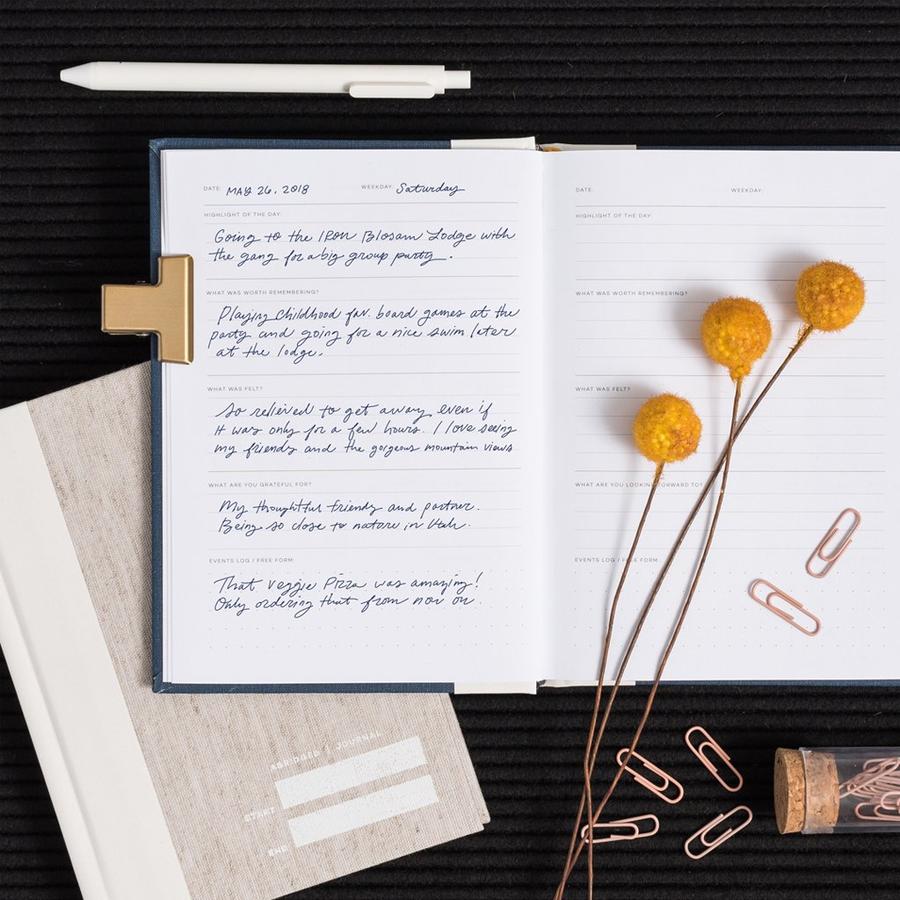 DATE: MAY 26, 2018 WEEKDAY: Saturday
HIGHLIGHT OF THE DAY:
Going to the Iron Blosam Lodge with
the gang for a big group party.
WHAT WAS WORTH REMEMBERING?
Playing childhood fav. board games at the
party and going for a nice swim later
at the lodge.
WHAT WAS FELT?
So relieved to get away even if
it was only for a few hours. I love seeing
my friends and the gorgeous mountain views
WHAT ARE YOU GRATEFUL FOR?
My thoughtful friends and partner.
Being so close to nature in Utah.
EVENTS LOG / FREE FORM:
That Veggie Pizza was amazing!
Only ordering that from now on.
DATE: WEEKDAY:
HIGHLIGHT OF THE DAY:
WHAT WAS WORTH REMEMBERING?
WHAT WAS FELT?
WHAT ARE YOU LOOKING FORWARD TO?
EVENTS LOG / FREE FORM:
ABRIDGED / JOURNAL
START
END